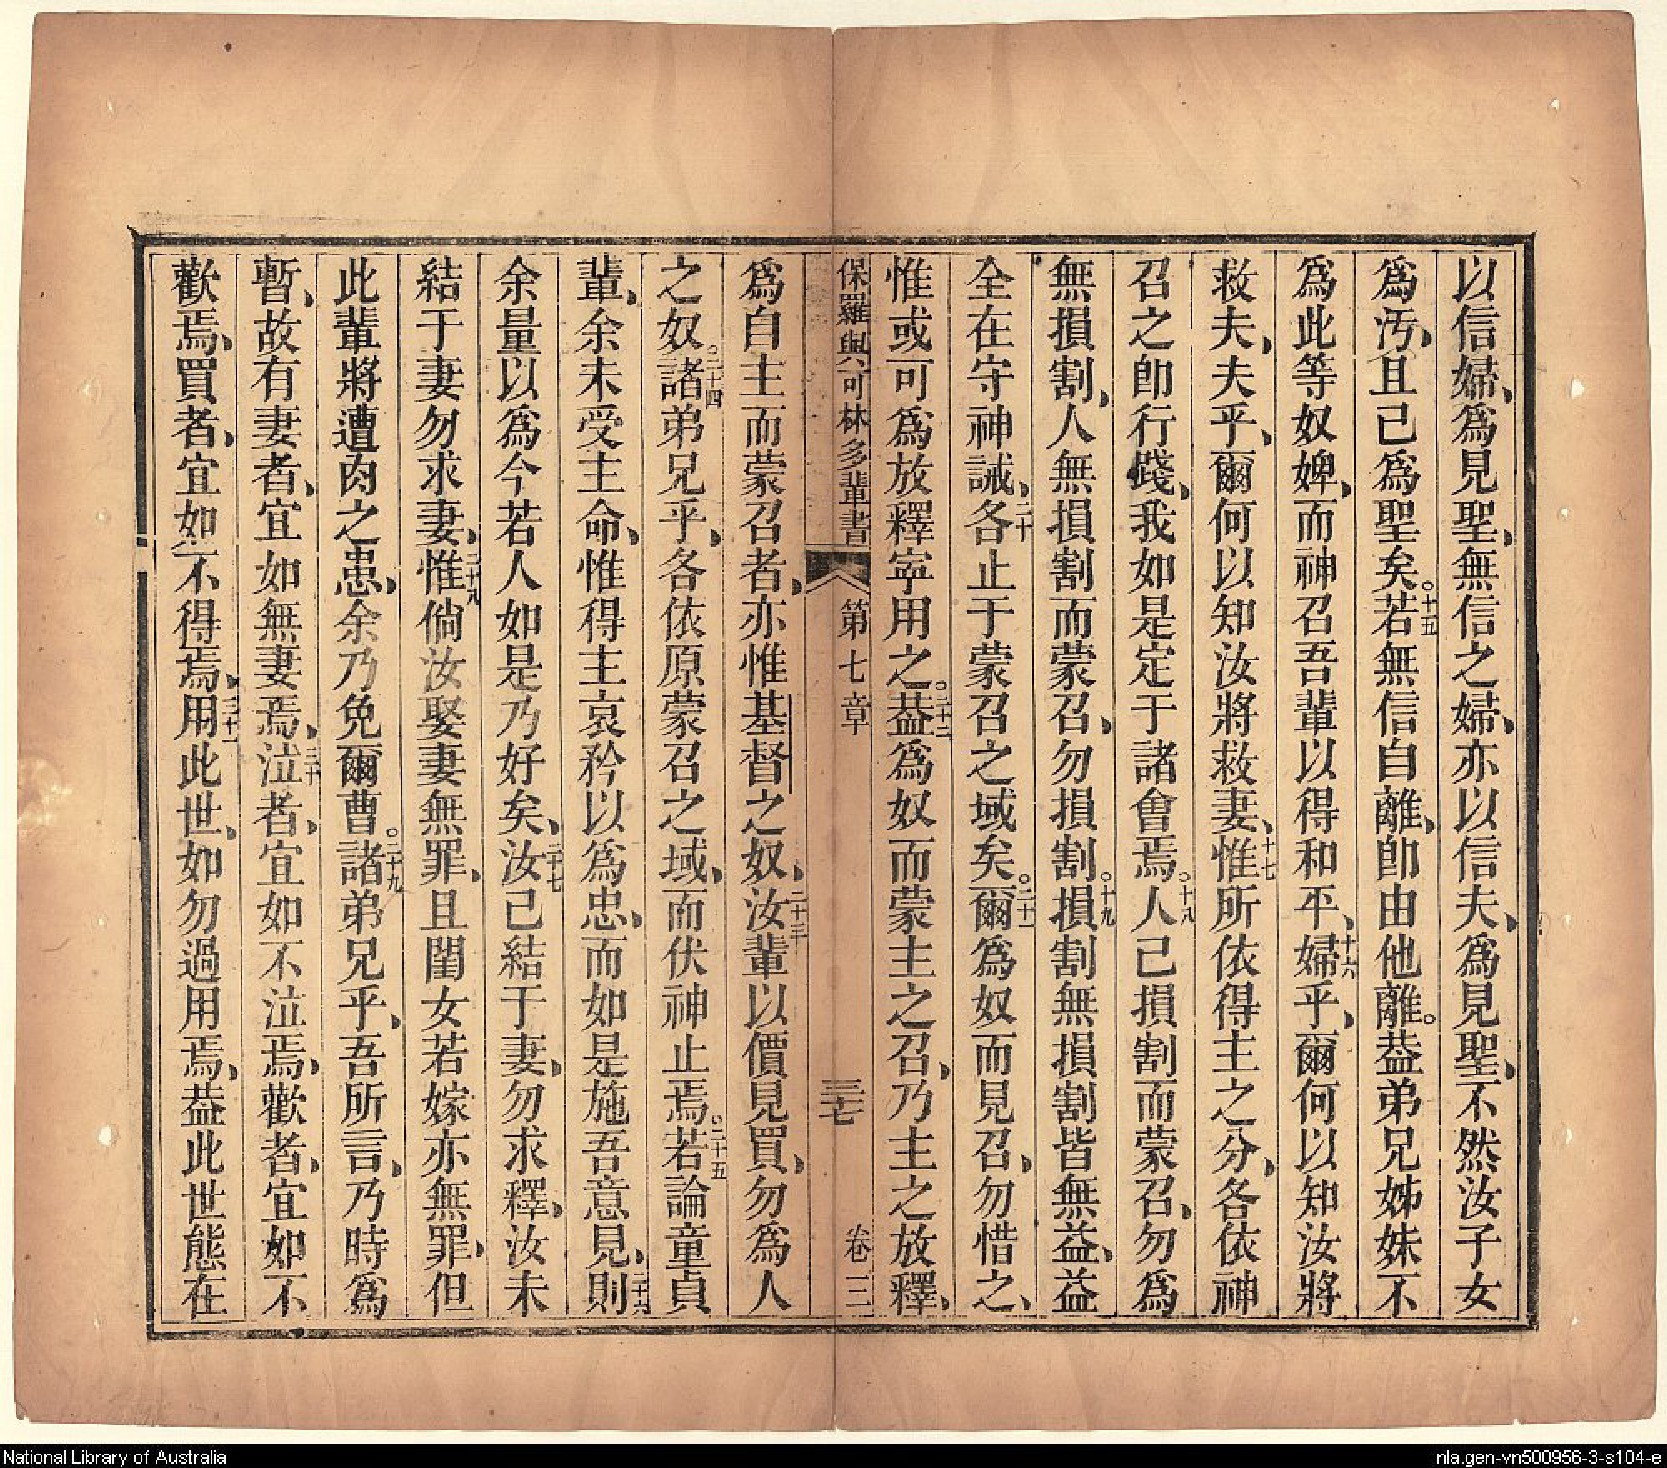 以信婦、爲見聖、無信之婦、亦以信夫、爲見聖、不然汝子女
爲汚、且已爲聖矣。十五若無信自離、卽由他離。葢弟兄姊妹不
爲此等奴婢、而神召吾輩以得和平、十六婦乎、爾何以知汝將
救夫、夫乎、爾何以知汝將救妻、十七惟所依得主之分、各依神
召之卽行踐、我如是定于諸會焉。十八人已損割而蒙召、勿爲
無損割、人無損割而蒙召、勿損割。十九損割無損割皆無益、益
全在守神誡、二十各止于蒙召之域矣。二十一爾爲奴而見召、勿惜之、
惟或可爲放釋寧用之。二十二葢爲奴而蒙主之召、乃主之放釋、
保羅與可林多輩書 第七章 三七 卷三
爲自主而蒙召者、亦惟基督之奴、二十三汝輩以價見買、勿爲人
之奴。二十四諸弟兄乎、各依原蒙召之域、而伏神止焉。二十五若論童貞
輩、余未受主命、惟得主哀矜以爲忠、而如是施吾意見、二十六則
余量以爲今若人如是乃好矣、二十七汝已結于妻、勿求釋、汝未
結于妻勿求妻、二十八惟倘汝娶妻無罪、且閨女若嫁亦無罪、但
此輩將遭肉之患、余乃免爾曹。二十九諸弟兄乎、吾所言、乃時爲
暫、故有妻者、宜如無妻焉、三十泣者、宜如不泣焉、歡者、宜如不
歡焉、買者、宜如不得焉、三十一用此世、如勿過用焉、葢此世態在
National Library of Australia
nla.gen-vn500956-3-s104-e